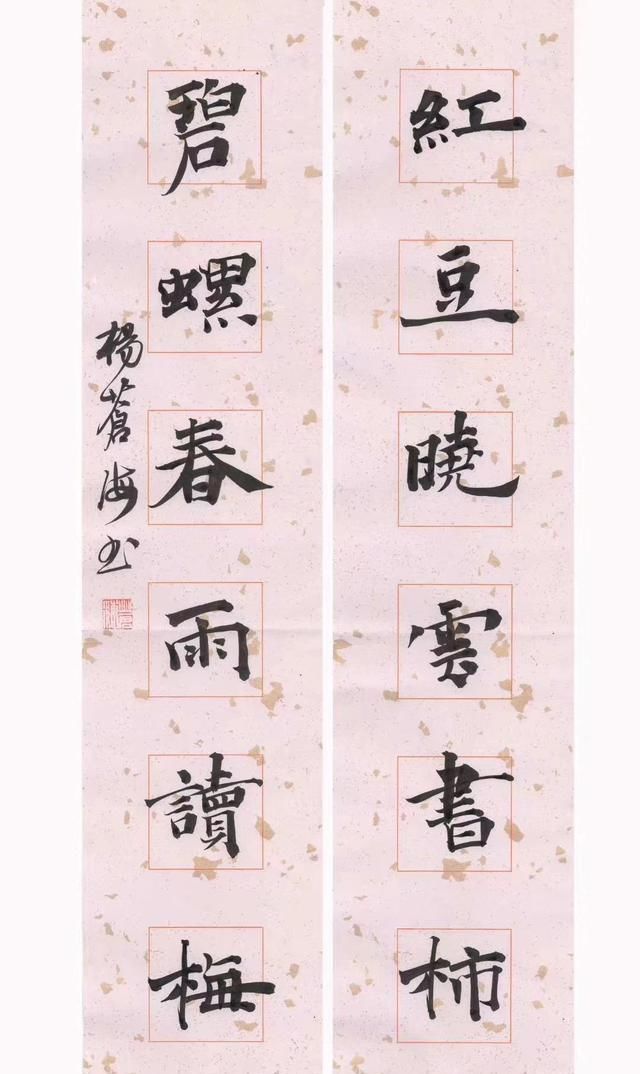 紅豆曉雲書柿
碧螺春雨讀梅
楊蒼海书